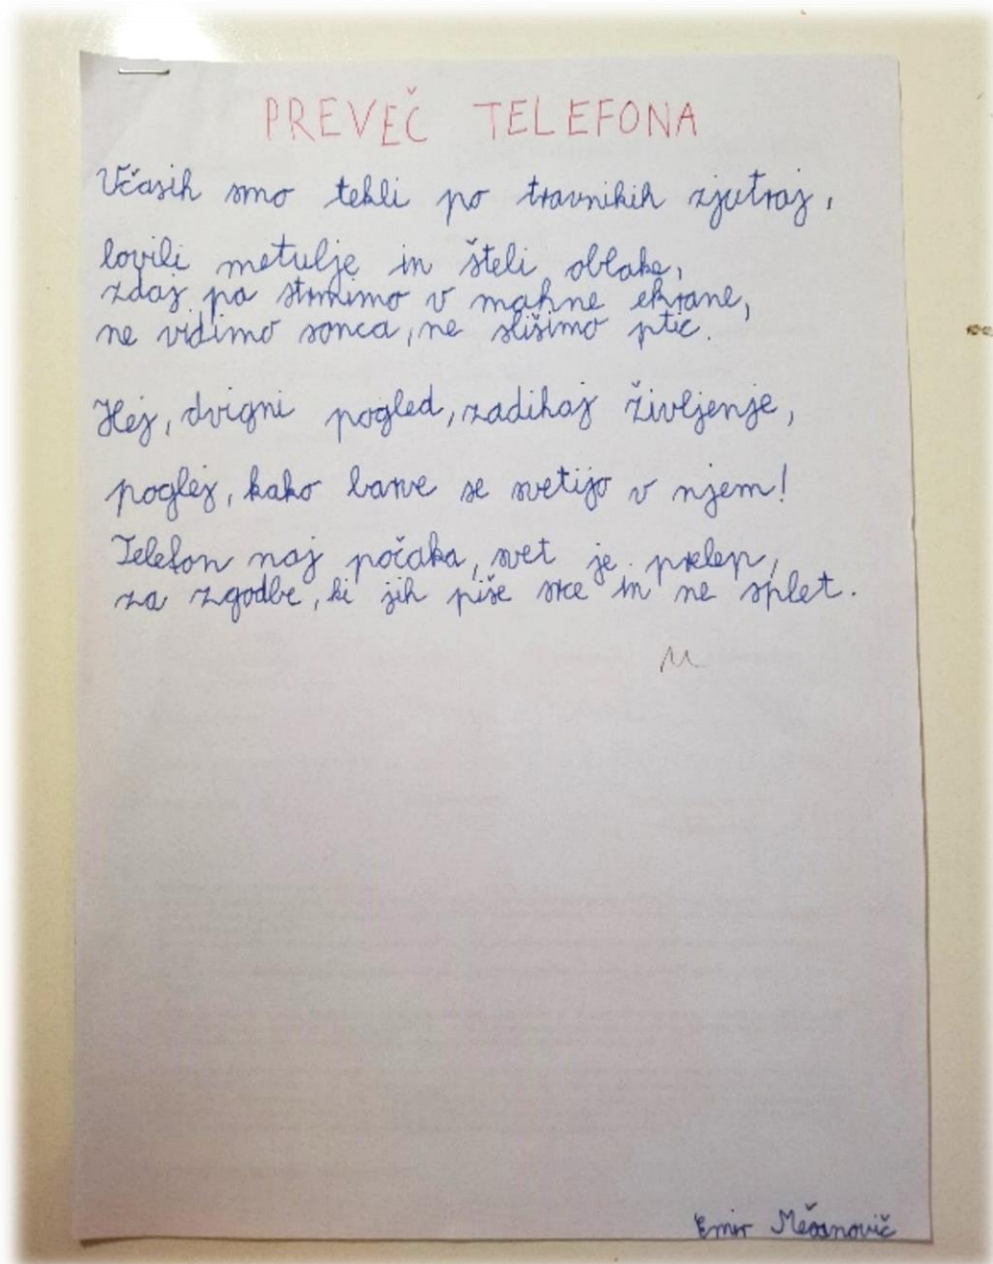 PREVEČ TELEFONA
Včasih smo tekli po travnikih zjutraj,
lovili metulje in šteli oblake,
zdaj pa strmimo v mahne ekrane,
ne vidimo sonca, ne slišimo ptic.
Hej, dvigni pogled, zadihaj življenje,
poglej, kako barve se svetijo v njem!
Telefon naj počaka, svet je prelep,
za zgodbe, ki jih piše srce in ne splet.
Emir